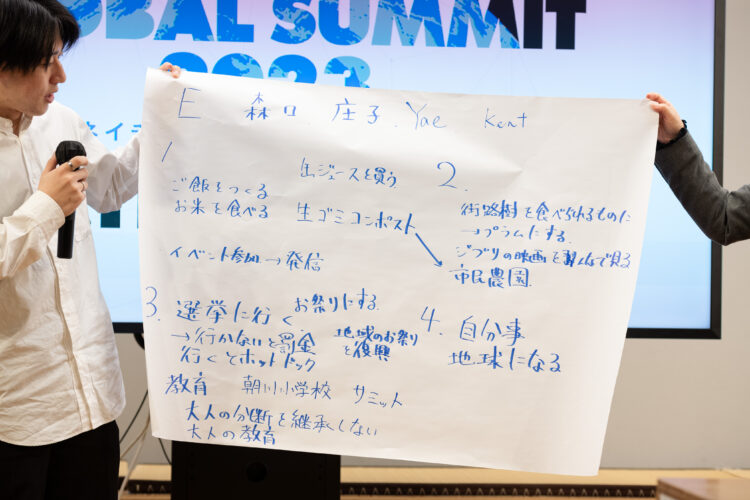 OBAL SUMMIT
2023
E 森口 庄子. Yae Kent
1
缶ジュースを買う
ご飯をつくる
お米を食べる
生ゴミコンポスト
イベント参加→発信
2.
街路樹を食べられるものに
→プラムにする.
ジブリの映画を観る
市民農園.
3. 選挙に行く
お祭りにする.
→行かないと罰金
行くとホットドック
地域のお祭り
を復興
4. 自分事
地球になる
教育 朝川小学校 サミット
大人の分断を継承しない
大人の教育